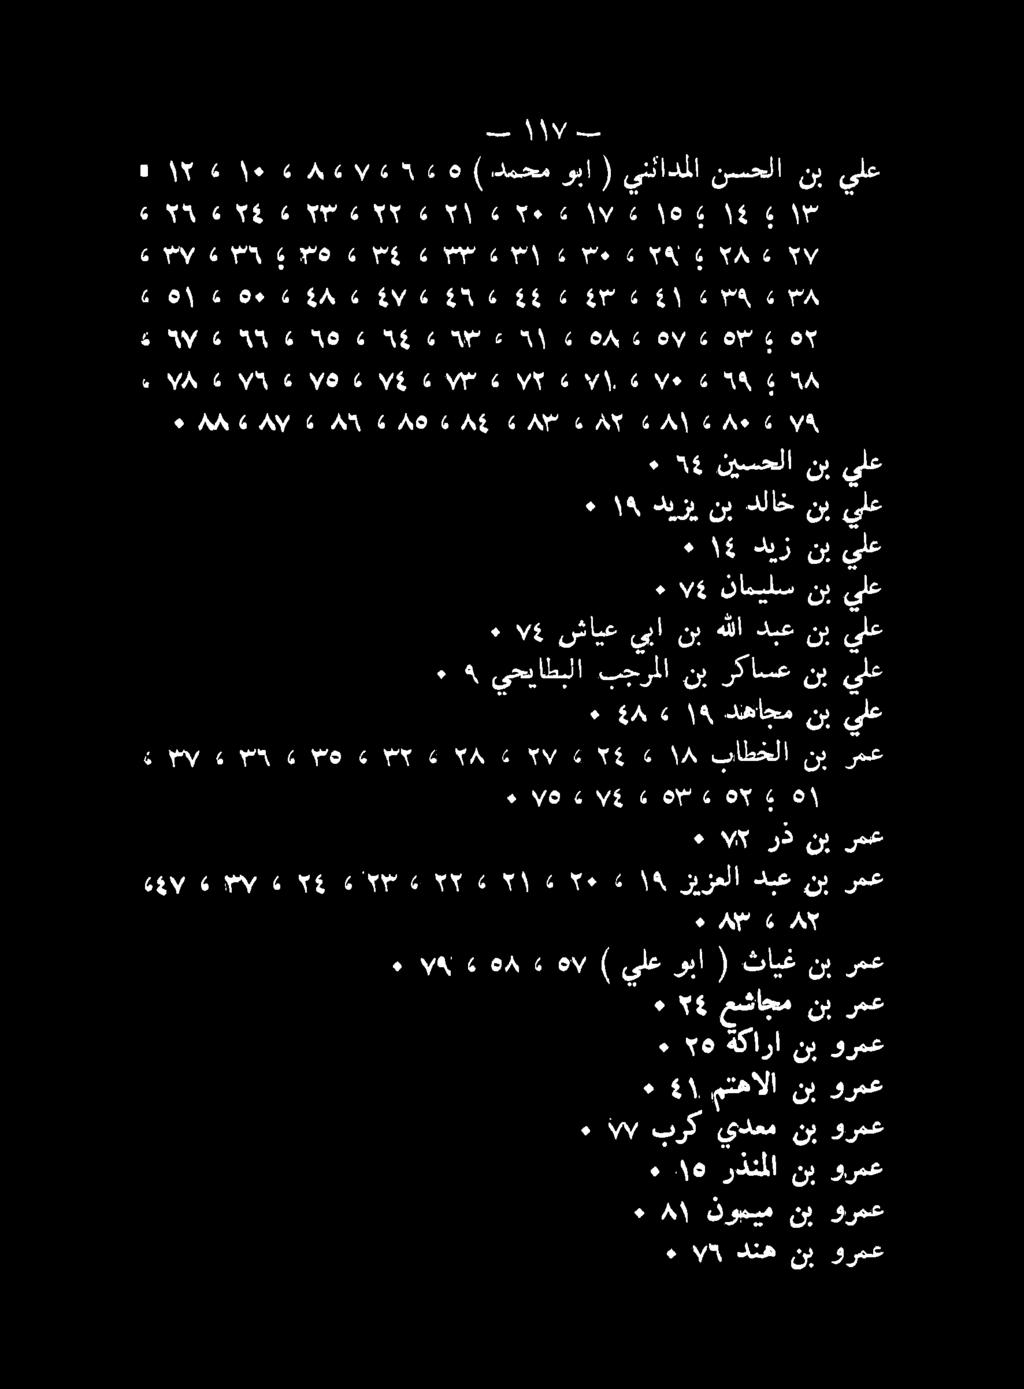 — ١١٧ —
علي بن الحسن المدائني ( ابو محمد ) ٥ ، ٦ ، ٧ ، ٨ ، ١٠ ، ١٢ ،
١٣ ؛ ١٤ ؛ ١٥ ، ١٧ ، ٢٠ ، ٢١ ، ٢٢ ، ٢٣ ، ٢٤ ، ٢٦ ،
٢٧ ، ٢٨ ؛ ٢٩ ، ٣٠ ، ٣١ ، ٣٣ ، ٣٤ ، ٣٥ ؛ ٣٦ ، ٣٧ ،
٣٨ ، ٣٩ ، ٤١ ، ٤٣ ، ٤٤ ، ٤٦ ، ٤٧ ، ٤٨ ، ٥٠ ، ٥١ ،
٥٢ ؛ ٥٣ ، ٥٧ ، ٥٨ ، ٦١ ، ٦٣ ، ٦٤ ، ٦٥ ، ٦٦ ، ٦٧ ،
٦٨ ؛ ٦٩ ، ٧٠ ، ٧١ ، ٧٢ ، ٧٣ ، ٧٤ ، ٧٥ ، ٧٦ ، ٧٨ ،
٧٩ ، ٨٠ ، ٨١ ، ٨٢ ، ٨٣ ، ٨٤ ، ٨٥ ، ٨٦ ، ٨٧ ، ٨٨ ٠
علي بن الحسين ٦٤ ٠
علي بن خالد بن يزيد ١٩ ٠
علي بن زيد ١٤ ٠
علي بن سليمان ٧٤ ٠
علي بن عبد الله بن ابي عياش ٧٤ ٠
علي بن عساكر بن المرجب البطايحي ٩ ٠
علي بن مجاهد ١٩ ، ٤٨ ٠
عمر بن الخطاب ١٨ ، ٢٤ ، ٢٧ ، ٢٨ ، ٣٢ ، ٣٥ ، ٣٦ ، ٣٧ ،
٥١ ؛ ٥٢ ، ٥٣ ، ٧٤ ، ٧٥ ٠
عمر بن ذر ٧٢ ٠
عمر بن عبد العزيز ١٩ ، ٢٠ ، ٢١ ، ٢٢ ، ٢٣ ، ٢٤ ، ٣٧ ، ٤٧،
٨٢ ، ٨٣ ٠
عمر بن غياث ( ابو علي ) ٥٧ ، ٥٨ ، ٧٩ ٠
عمر بن مجاشع ٢٤ ٠
عمرو بن اراكة ٢٥ ٠
عمرو بن الاهتم ٤١ ٠
عمرو بن معدي كرب ٧٧ ٠
عمرو بن المنذر ١٥ ٠
عمرو بن ميمون ٨١ ٠
عمرو بن هند ٧٦ ٠